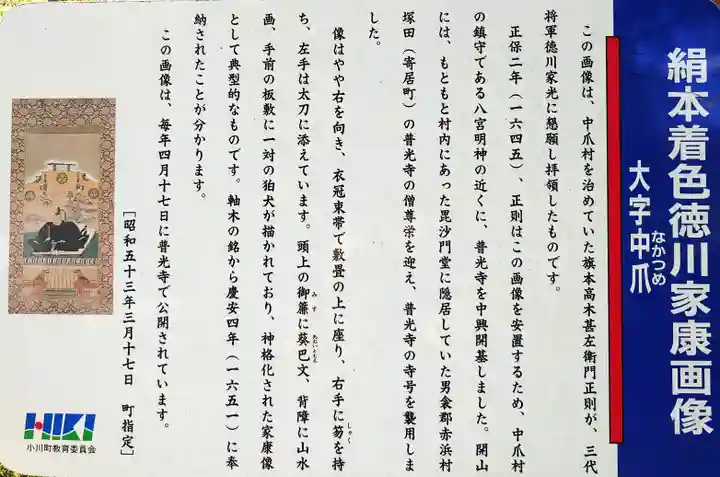 絹本着色徳川家康画像
大字中爪
なかつめ
この画像は、中爪村を治めていた旗本高木甚左衛門正則が、三代
将軍徳川家光に懇願し拝領したものです。
正保二年（一六四五）、正則はこの画像を安置するため、中爪村
の鎮守である八宮明神の近くに、普光寺を中興開基しました。開山
には、もともと村内にあった毘沙門堂に隠居していた男衾郡赤浜村
塚田（寄居町）の普光寺の僧尊栄を迎え、普光寺の寺号を襲用しま
した。
像はやや右を向き、衣冠束帯で敷畳の上に座り、右手に笏を持
しゃく
ち、左手は太刀に添えています。頭上の御簾に葵巴文、背障に山水
みす
あおいともえもん
画、手前の板敷に一対の狛犬が描かれており、神格化された家康像
として典型的なものです。軸木の銘から慶安四年（一六五一）に奉
納されたことが分かります。
この画像は、毎年四月十七日に普光寺で公開されています。
［昭和五十三年三月十七日　町指定］
HIKI
小川町教育委員会